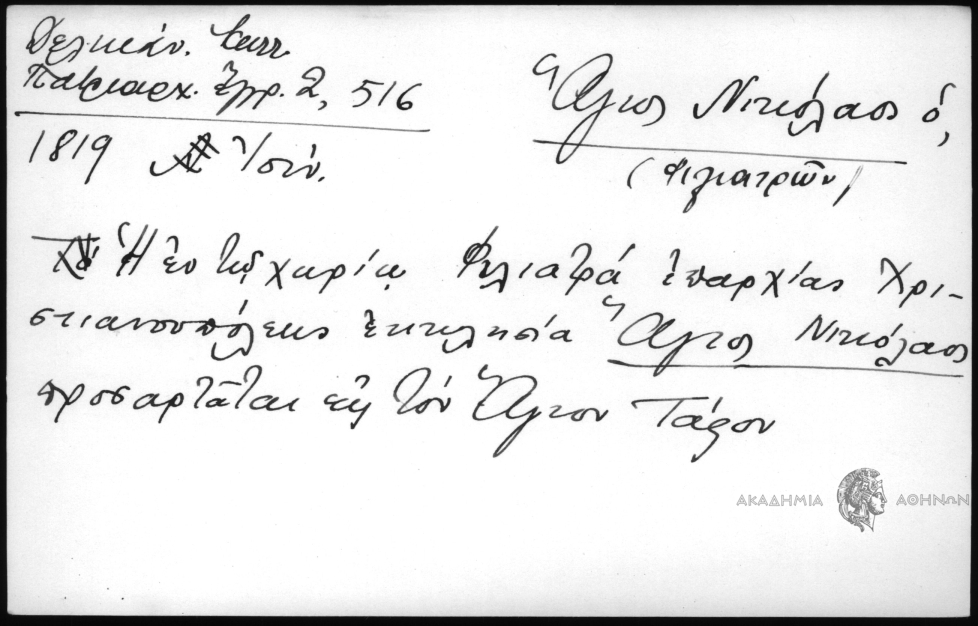 Δελικάν.
Πατριαρχ. Ἔγγρ. 2, 516
1819 Ἰουν.
Ἅγιος Νικόλαος ὁ,
(Φιλιατρῶν)
Ἡ ἐν τῷ χωρίῳ Φιλιατρά ἐπαρχίας Χρι-
στιανουπόλεως ἐκκλησία Ἅγιος Νικόλαος
προσαρτᾶται εἰς τόν Ἅγιον Τάφον
ΑΚΑΔΗΜΙΑ ΑΘΗΝΩΝ